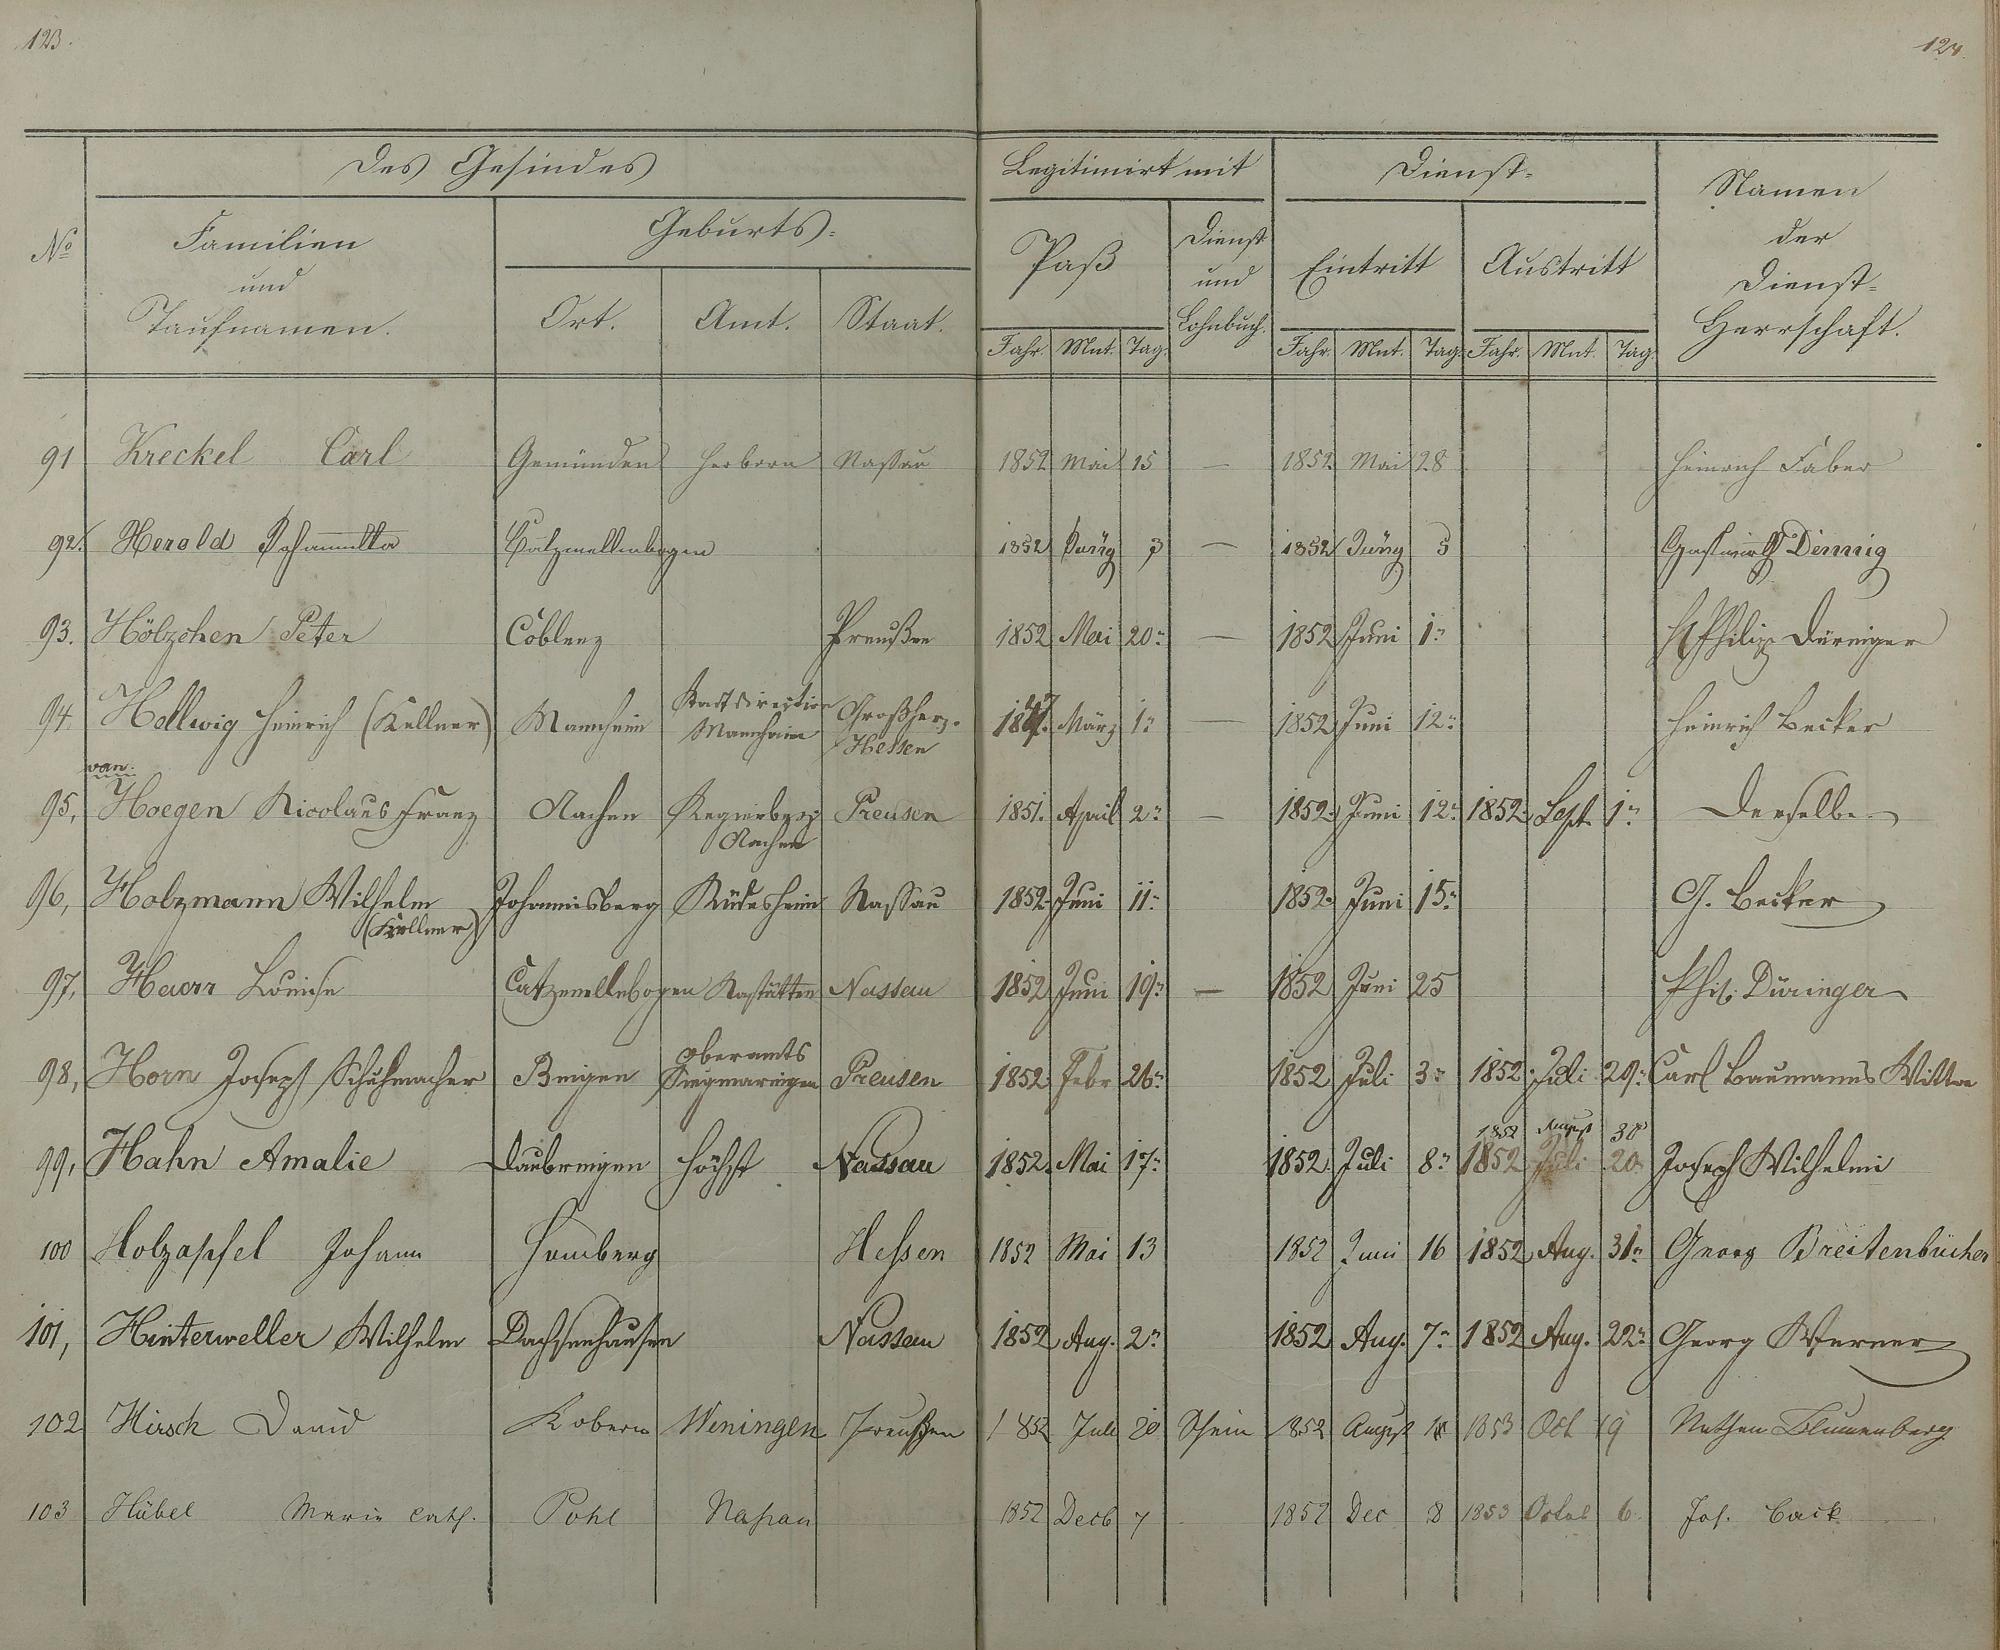 123.
124.
Des Gesindes
Legitimirt mit
Dienst-
Namen der Dienst-Herrschaft.
No
Familien und Taufnamen.
Geburts-
Paß
Dienst und Lohnbuch.
Eintritt
Austritt
Ort. Amt. Staat.
Jahr. Mnt. Tag. Jahr. Mnt. Tag. Jahr. Mnt. Tag.
91 Kreckel Carl Gemünden Herborn Nassau 1852 Mai 15 — 1852 Mai 28 Heinrich Faber
92. Herold Johannetta Catzenellenbogen 1852 3 — 1852 5 Gastwirth
93. Hölzchen Peter Coblenz Preußen 1852 Mai 20" — 1852 Juni 1" Philipp Düringer
94. Hellwig Heinrich (Kellner) Mannheim Stadtdirection Mannheim Großherz. Hessen 1847. März 1" — 1852 Juni 12" Heinrich Becker
95, van Hoegen Nicolaus Franz Aachen Regierbezz Aachen Preusen 1851. April 2" — 1852. Juni 12" 1852. Sept. 1" Derselbe
96, Holzmann Wilhelm (Kellner) Johannisberg Rüdesheim Nassau 1852. Juni 11" 1852. Juni 15" G. Becker
97, Louise Catzenellebogen Nastätten Nassau 1852 Juni 19" — 1852 Juni 25 Phil. Düringer
98, Horn Joseph Schuhmacher Bingen Oberamts Siegmaringen Preusen 1852 Febr 26" 1852 Juli 3" 1852. Juli 29" Carl Baumanns Wittwe
1852 August 30
99, Hahn Amalie Höchst Nassau 1852. Mai 17" 1852. Juli 8" 1852 Juli 20 Joseph Wilhelmi
100 Holzapfel Johann Homberg Hessen 1852 Mai 13 1852 Juni 16 1852 Aug. 31" Georg Breitenbücher
101, Hinterweller Wilhelm Dachsenhausen Nassau 1852 Aug. 2" 1852 Aug. 7" 1852 Aug. 22" Georg Werner
102 Hirsch David Kobern Weningen Preußen 1852 Juli 20 Schein 1852 August 1853 Oct 9 Nathan Blumenberg
103 Hübel Marie Cath. Pohl Nassau 1852 Decb 7 1852 Dec 8 1853 Octob 6 Jos. Back